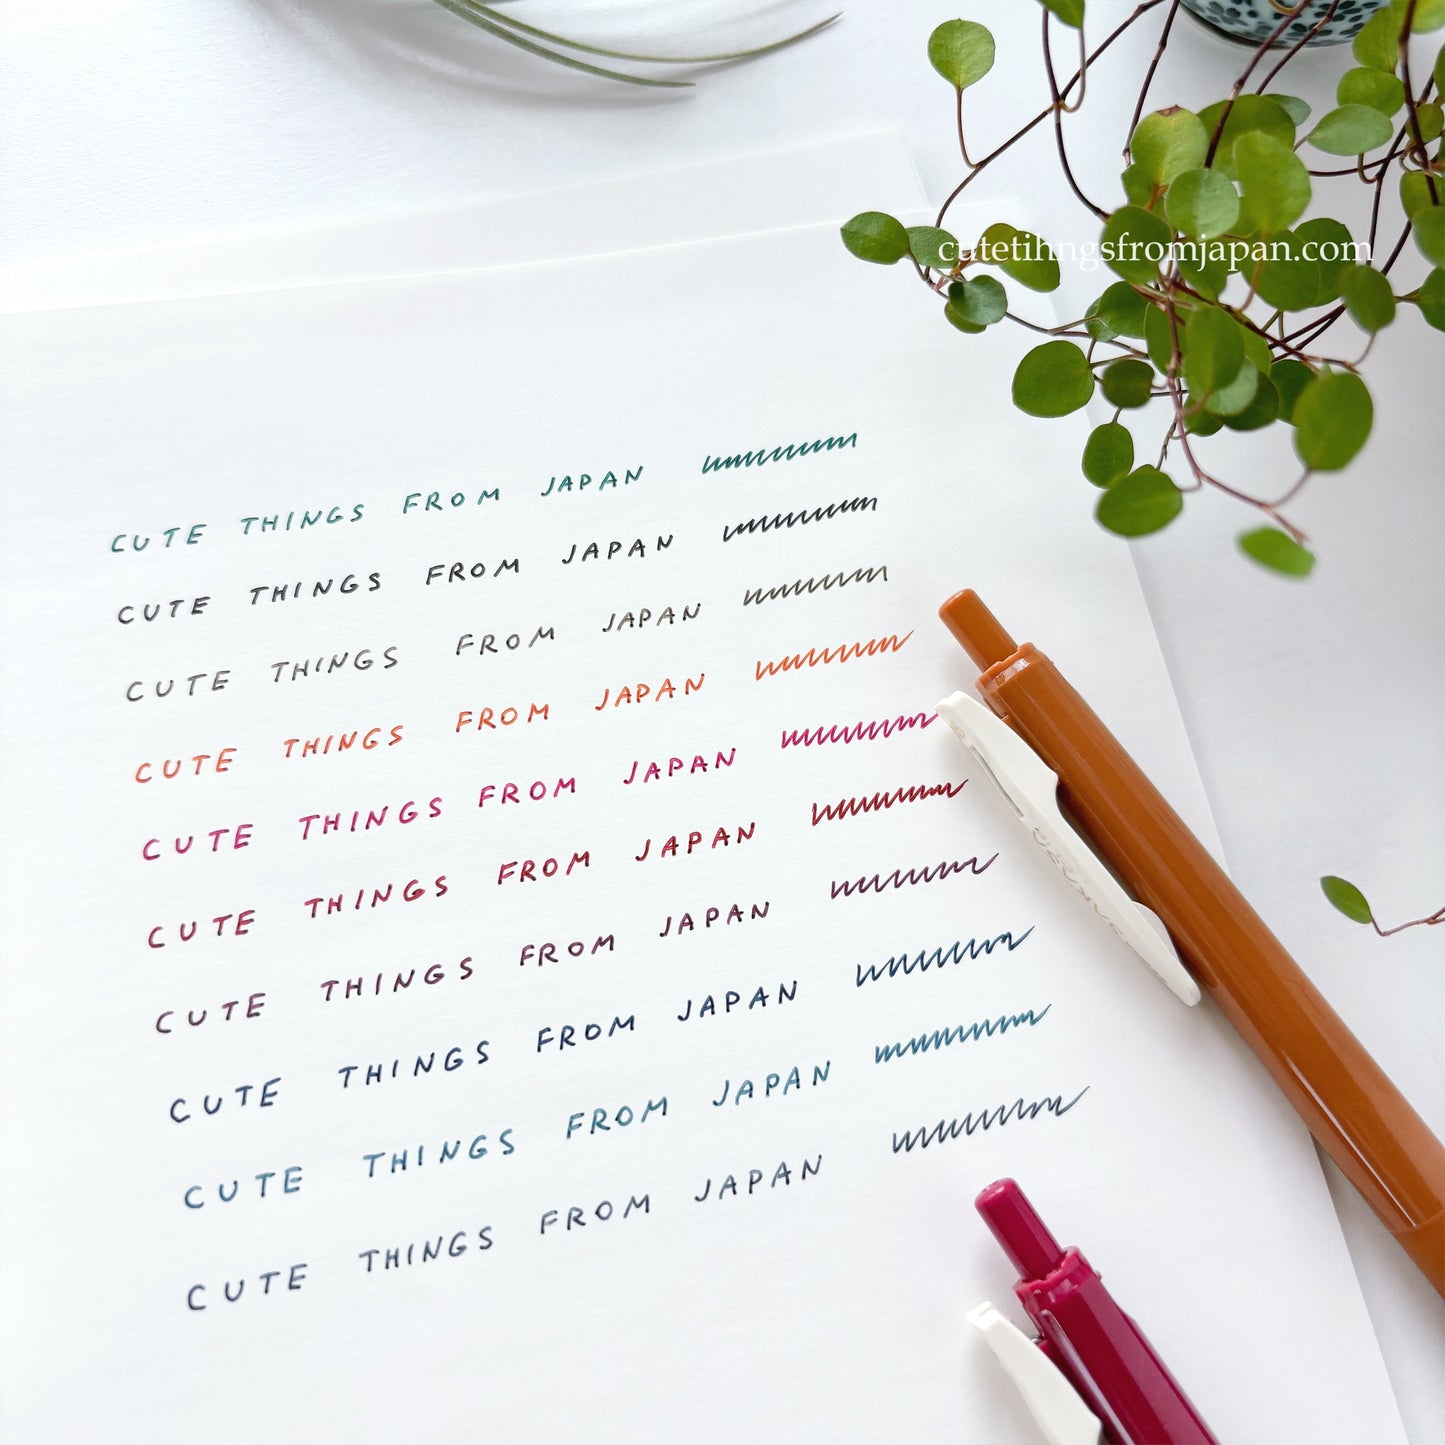 cutetihngsfromjapan.com
CUTE THINGS FROM JAPAN
CUTE THINGS FROM JAPAN
CUTE THINGS FROM JAPAN
CUTE THINGS FROM JAPAN
CUTE THINGS FROM JAPAN
CUTE THINGS FROM JAPAN
CUTE THINGS FROM JAPAN
CUTE THINGS FROM JAPAN
CUTE THINGS FROM JAPAN
CUTE THINGS FROM JAPAN